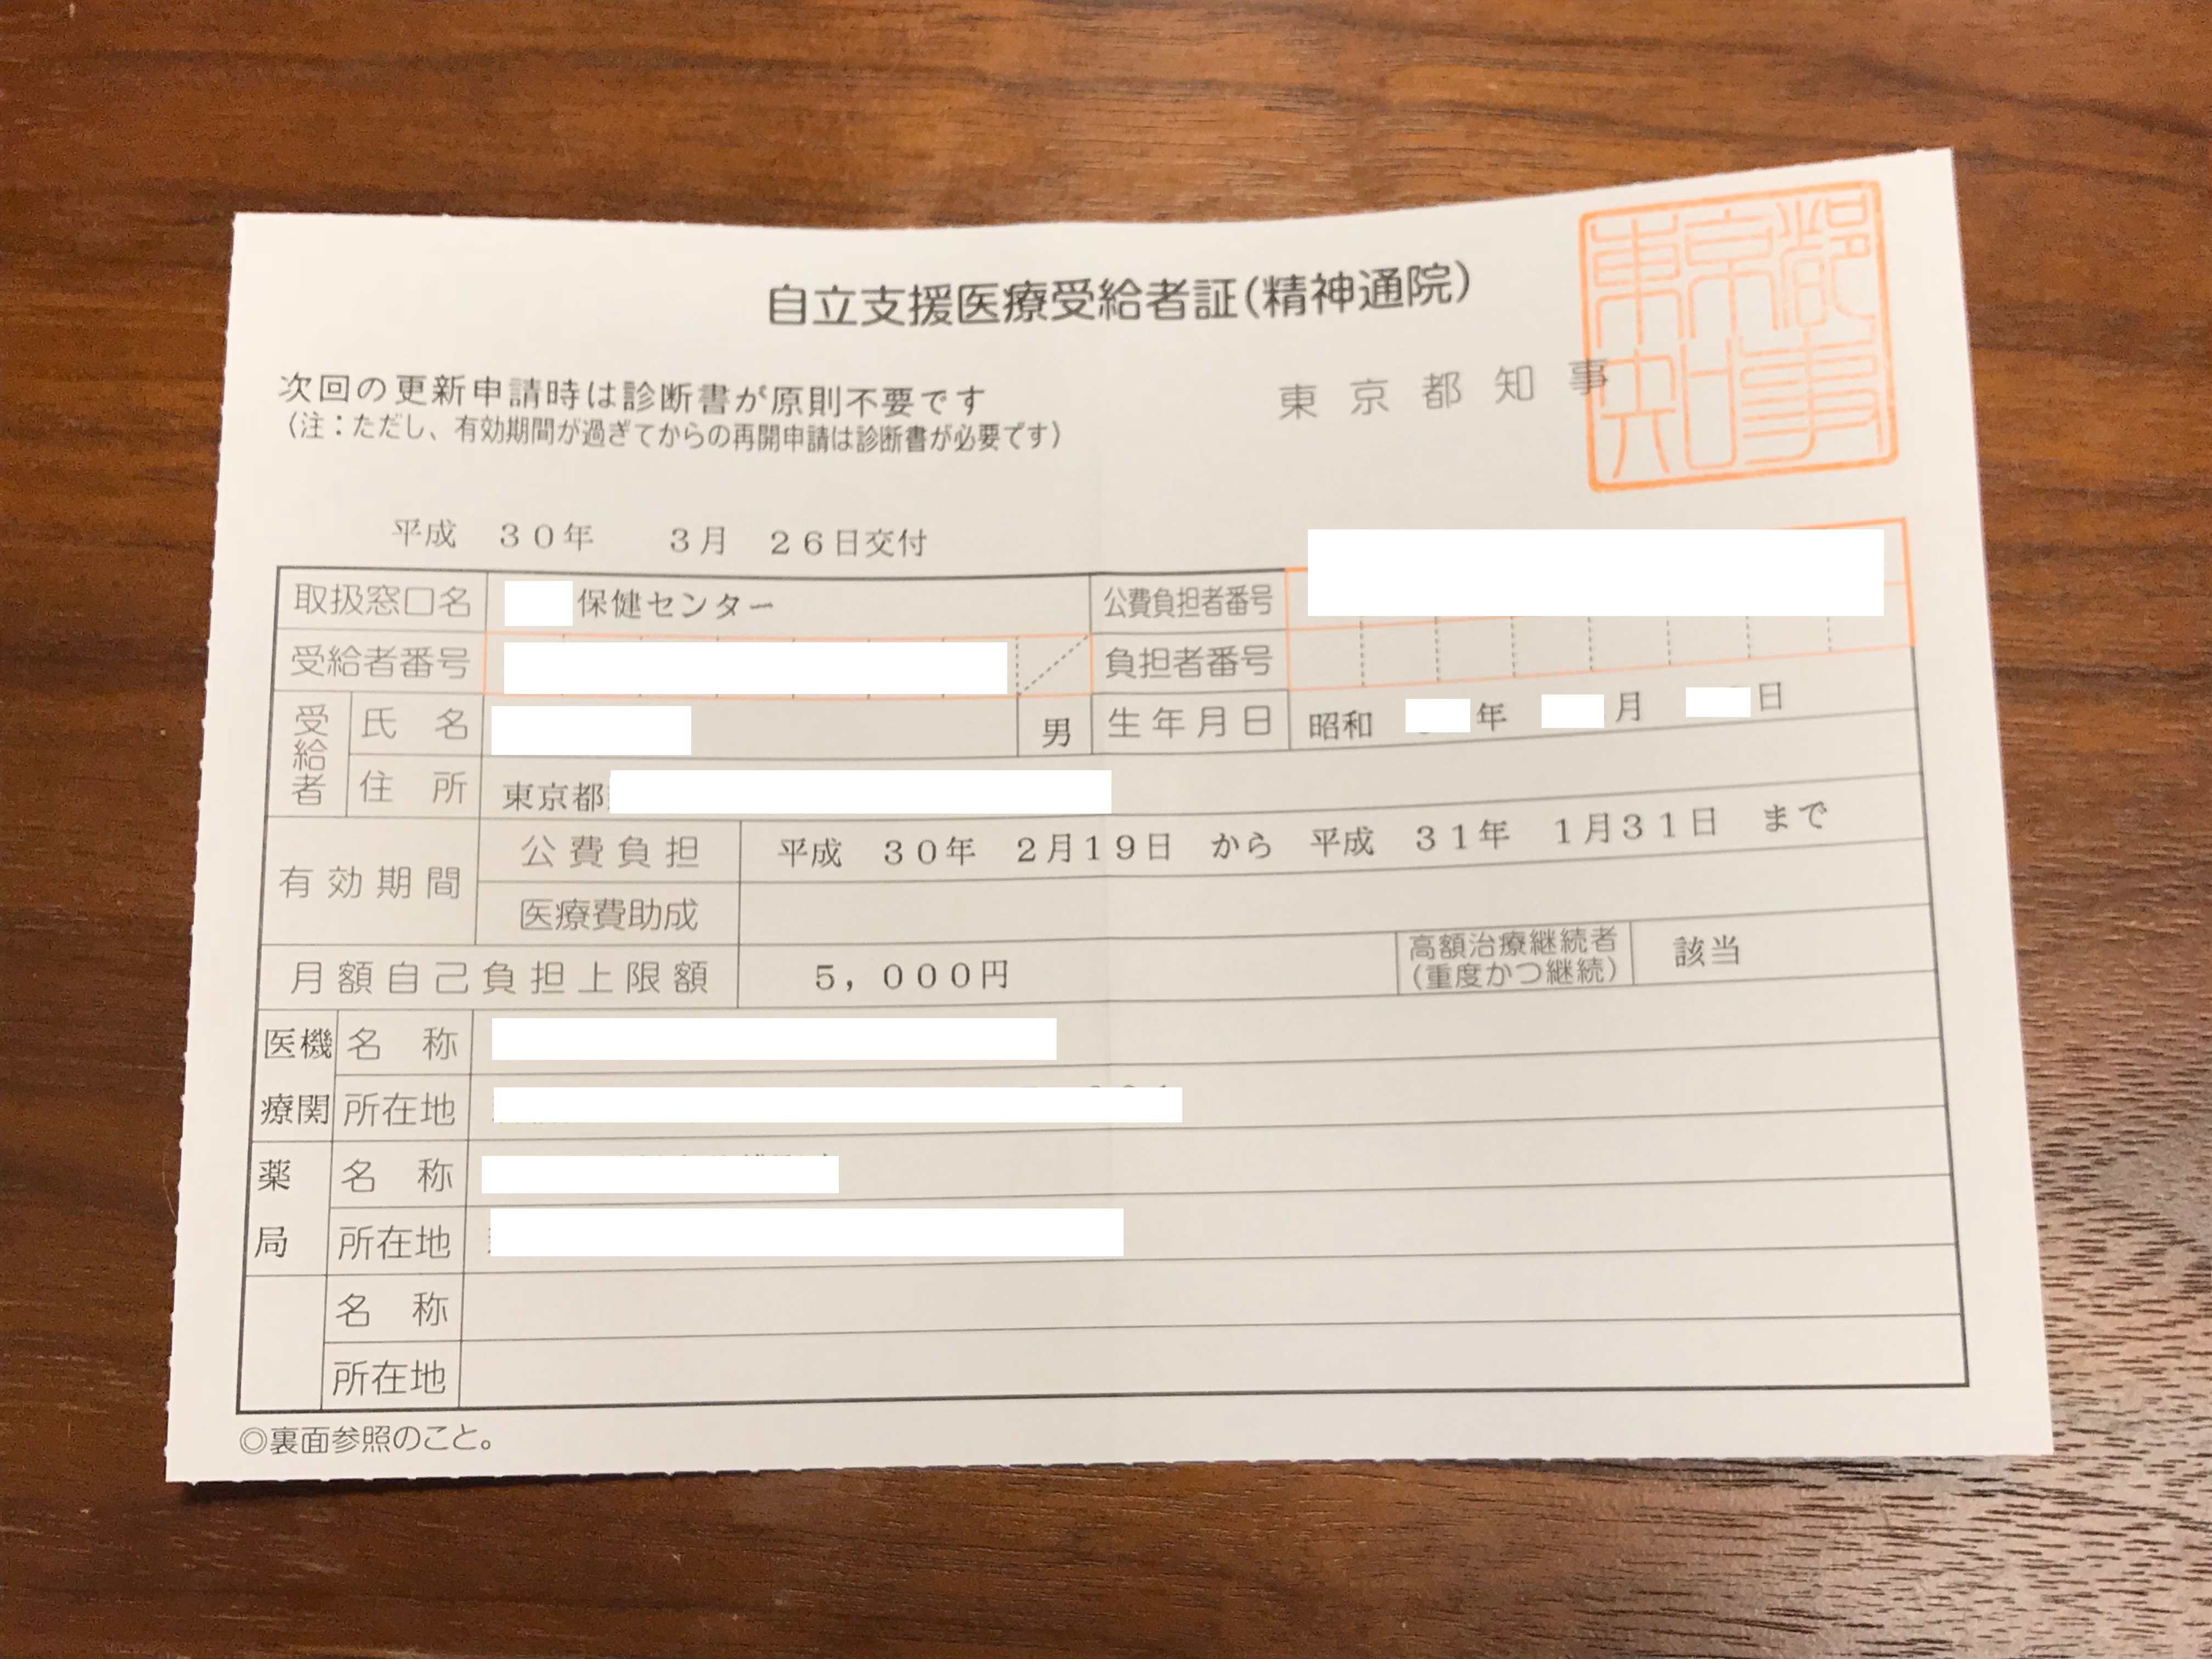 自立支援医療受給者証(精神通院)
次回の更新申請時は診断書が原則不要です
(注：ただし、有効期間が過ぎてからの再開申請は診断書が必要です)
東京都知事
東京都知事
平成 30年 3月 26日交付
取扱窓口名 保健センター 公費負担者番号
受給者番号 負担者番号
受給者 氏名 男 生年月日 昭和 年 月 日
住所 東京都
有効期間 公費負担 平成 30年 2月19日 から 平成 31年 1月31日 まで
医療費助成
月額自己負担上限額 5，000円 高額治療継続者(重度かつ継続) 該当
医療機関 名称
所在地
薬局 名称
所在地
名称
所在地
◎裏面参照のこと。